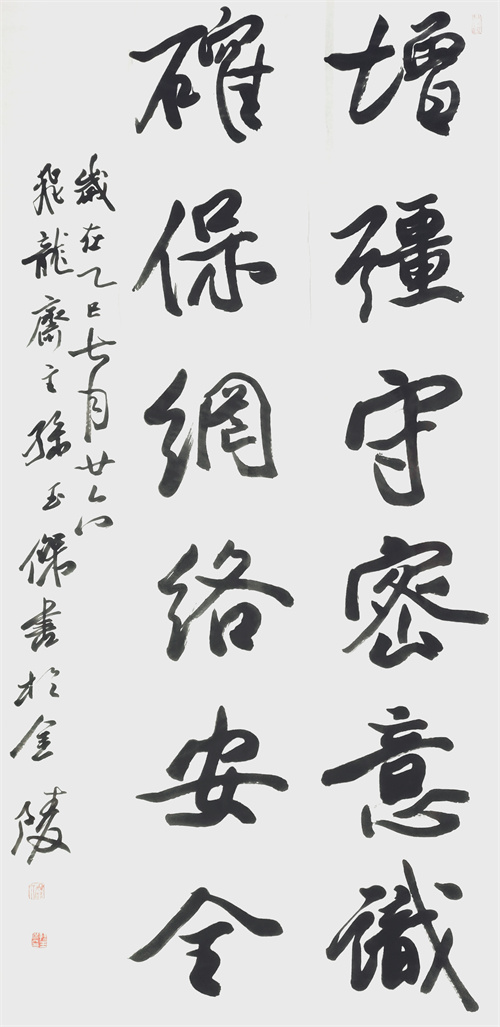 增彊守密意識
確保網絡安全
歲在乙巳七月廿六
飛龍齋主孫玉傑書於金陵